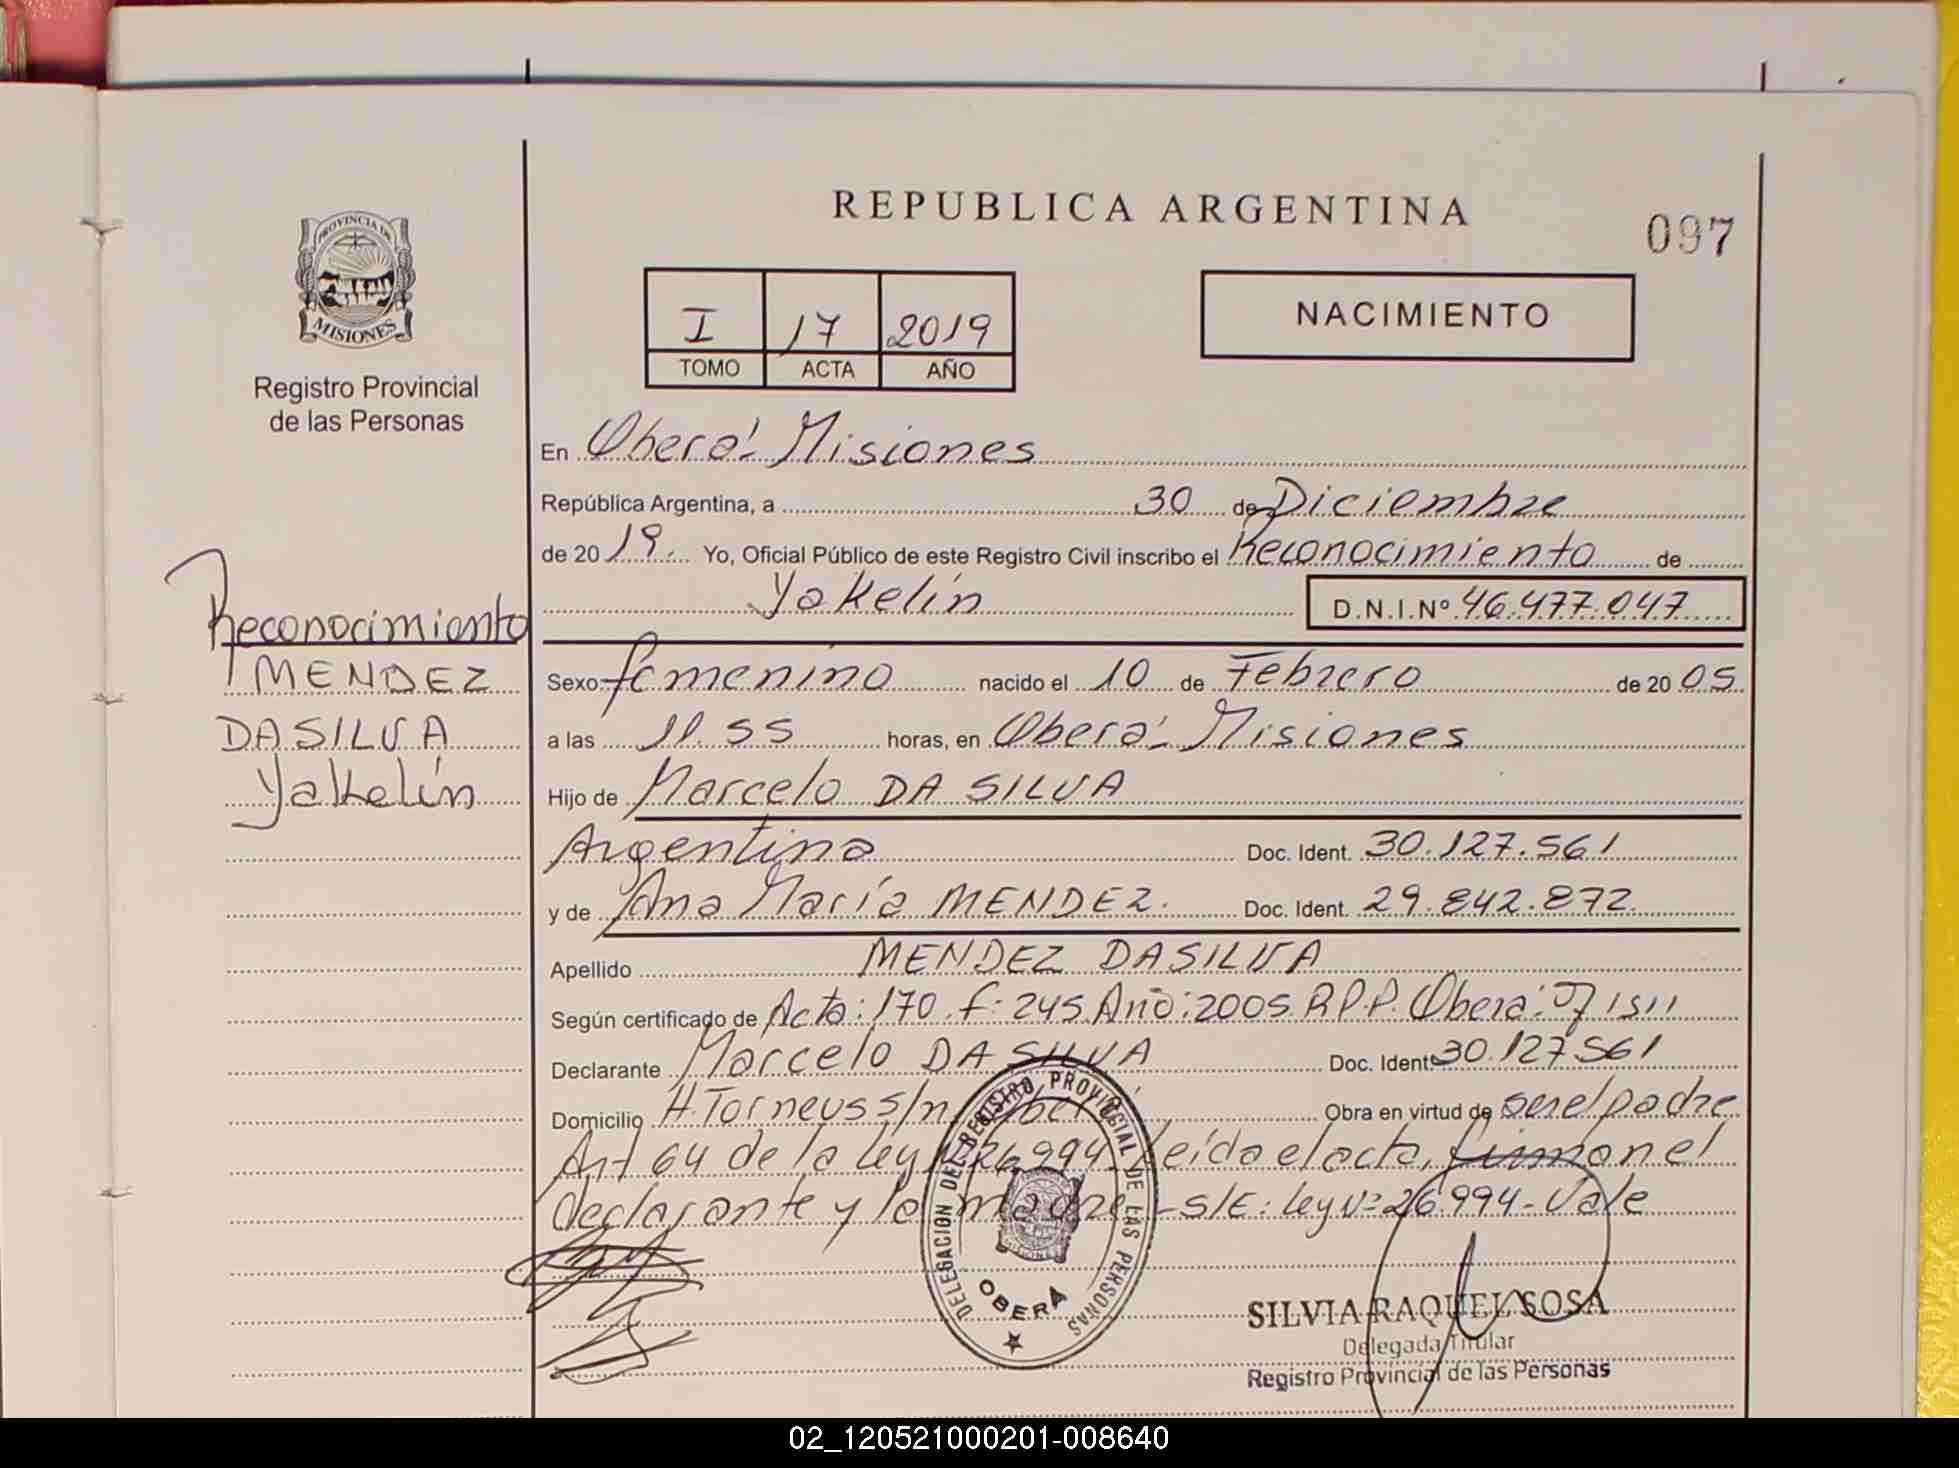 PROVINCIA DE
MISIONES
Registro Provincial
de las Personas
REPUBLICA ARGENTINA
097
I 17 2019
TOMO ACTA AÑO
NACIMIENTO
En Oberá - Misiones
República Argentina, a 30 de Diciembre
de 2019. Yo, Oficial Público de este Registro Civil inscribo el Reconocimiento de
Yakelín D.N.I.Nº 46.477.047
Reconocimiento
MENDEZ
DASILVA
Yakelín
Sexo femenino nacido el 10 de Febrero de 2005
a las 11.55 horas, en Oberá - Misiones
Hijo de Marcelo DA SILVA
Argentina Doc. Ident. 30.127.561
y de Ana María MENDEZ. Doc. Ident. 29.842.872
Apellido MENDEZ DASILVA
Según certificado de Acta: 170. f: 245. Año: 2005. R.P.P. Oberá.
Declarante Marcelo DA SILVA Doc. Ident. 30.127.561
Domicilio H. Torneus s/n, Obera Obra en virtud de ser el padre
Art 64 de la Ley 26.994 Leída el acta, firman el
declarante y la madre - S/E: Ley Nº 26.994 - Vale
DELEGACION DEL REGISTRO PROVINCIAL DE LAS PERSONAS
OBERA
SILVIA RAQUEL SOSA
Delegada Titular
Registro Provincial de las Personas
02_120521000201-008640